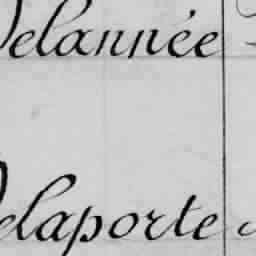 Delannée
Delaporte